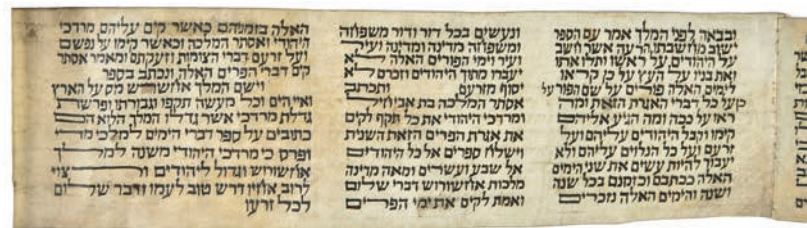 ובבאה לפני המלך אמר עם הספר
ישוב מחשבתו הרעה אשר חשב
על היהודים על ראשו ותלו אתו
ואת בניו על העץ על כן קראו
לימים האלה פורים על שם הפור על
כן על כל דברי האגרת הזאת ומה
ראו על ככה ומה הגיע אליהם
קימו וקבל היהודים עליהם ועל
זרעם ועל כל הנלוים עליהם ולא
יעבור להיות עשים את שני הימים
האלה ככתבם וכזמנם בכל שנה
ושנה והימים האלה נזכרים
ונעשים בכל דור ודור משפחה
ומשפחה מדינה ומדינה ועיר
ועיר וימי הפורים האלה לא
יעברו מתוך היהודים וזכרם לא
יסוף מזרעם ותכתב
אסתר המלכה בת אביחיל
ומרדכי היהודי את כל תקף לקים
את אגרת הפרים הזאת השנית
וישלח ספרים אל כל היהודים
אל שבע ועשרים ומאה מדינה
מלכות אחשורוש דברי שלום
ואמת לקים את ימי הפרים
האלה בזמניהם כאשר קים עליהם מרדכי
היהודי ואסתר המלכה וכאשר קימו על נפשם
ועל זרעם דברי הצומות וזעקתם ומאמר אסתר
קים דברי הפרים האלה ונכתב בספר
וישם המלך אחשורש מס על הארץ
ואיי הים וכל מעשה תקפו וגבורתו ופרשת
גדלת מרדכי אשר גדלו המלך הלוא הם
כתובים על ספר דברי הימים למלכי מדי
ופרס כי מרדכי היהודי משנה למלך
אחשורוש וגדול ליהודים ורצוי
לרוב אחיו דרש טוב לעמו ודבר שלום
לכל זרעו